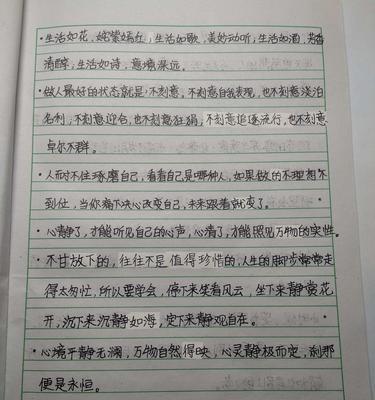 ·生活如花，姹紫嫣红；生活如歌，美妙动听；生活如酒，芳香
清醇；生活如诗，意境深远。
·做人最好的状态就是：不刻意。不刻意自我表现，也不刻意淡泊
名利，不刻意迎合，也不刻意狂狷，不刻意追逐流行，也不刻意
卓尔不群。
·人前对不住琢磨自己，看看自己是哪种人，如果做的不理想不
到位，当你痛下决心改变自己，未来跟着就变了。
·心静了，才能听见自己的心声，心清了，才能照见万物的实性。
·不甘放下的，往往不是值得珍惜的，人生的脚步常常走
得太匆忙，所以要学会，停下来笑看风云，坐下来静赏花
开，沉下来沉静如海，定下来静观自在。
·心境平静无澜，万物自然得映，心灵静极而定，刹那
便是永恒。